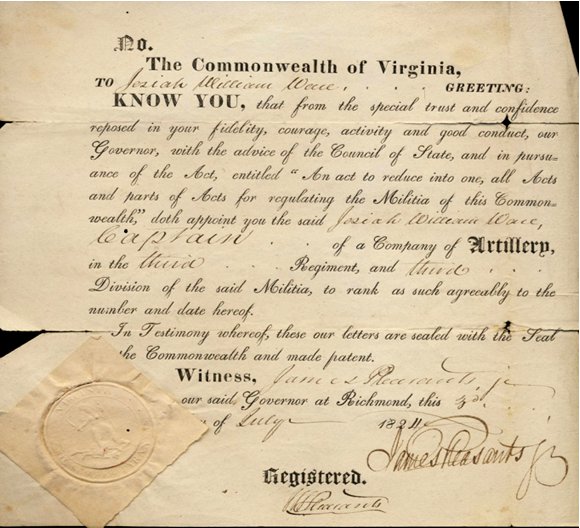 No.
The Commonwealth of Virginia,
TO Josiah William Ware . . . . GREETING:
KNOW YOU, that from the special trust and confidence
reposed in your fidelity, courage, activity and good conduct, our
Governor, with the advice of the Council of State, and in pursu-
ance of the Act, entitled “An act to reduce into one, all Acts
and parts of Acts for regulating the Militia of this Common-
wealth,” doth appoint you the said Josiah William Ware,
Captain . . of a Company of Artillery,
in the third . . Regiment, and third . . .
Division of the said Militia, to rank as such agreeably to the
number and date hereof.
In Testimony whereof, these our letters are sealed with the Seal
the Commonwealth and made patent.
Witness, James Pleasants, jr
our said Governor at Richmond, this 3d.
of July 1824
James Pleasants jr
Registered.